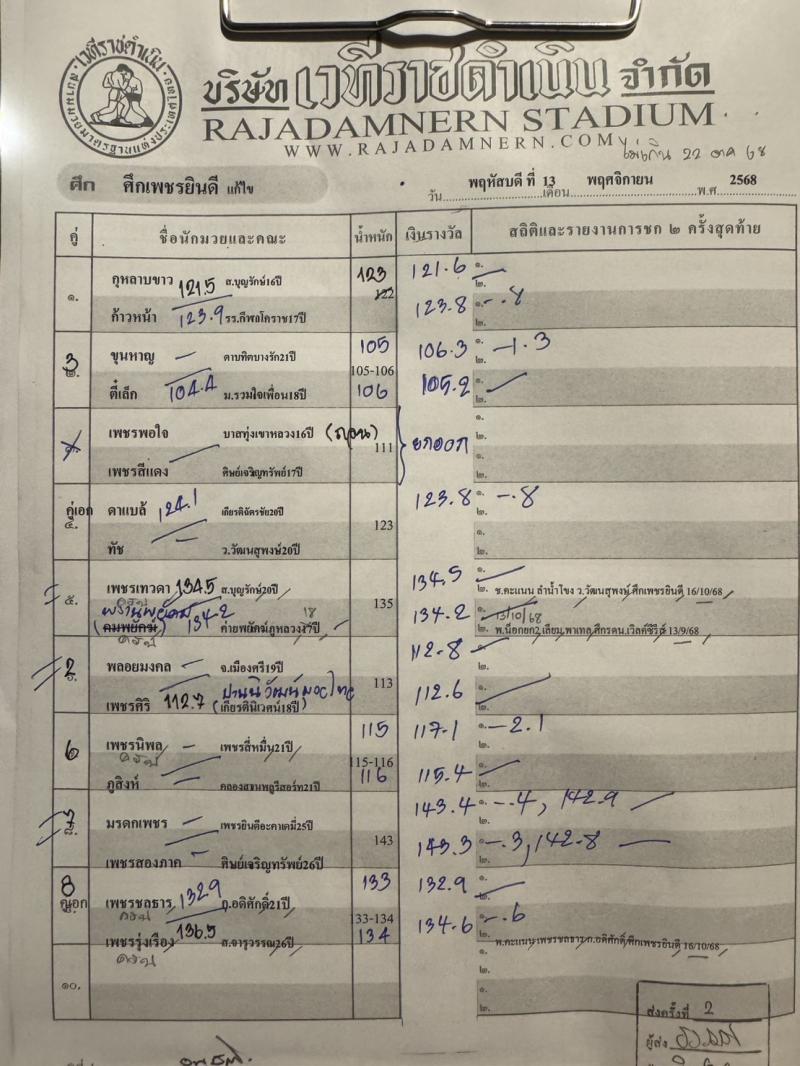 เวทีราชดำเนิน
บริษัท เวทีราชดำเนิน จำกัด
RAJADAMNERN STADIUM
WWW.RAJADAMNERN.COM
ไม่เกิน 22 ตค 68
ศึก ศึกเพชรยินดี แก้ไข
วัน พฤหัสบดี ที่ 13 เดือน พฤศจิกายน พ.ศ 2568
คู่ ชื่อนักมวยและคณะ น้ำหนัก เงินรางวัล สถิติและรายงานการชก ๒ ครั้งสุดท้าย
๑. กุหลาบขาว 121.5 ส.บุญรักษ์16ปี 123 121.6 ๑.
122 ๒.
ก้าวหน้า 123.9 รร.กีฬาโคราช17ปี 123.8 ๑. -.8
๒.
3 ขุนหาญ – ดาบทิตบางรัก21ปี 105 106.3 ๑. -1.3
๒. 105-106 ๒.
ตี๋เล็ก 104.4 ม.รวมใจเพื่อน18ปี 106 105.2 ๑.
๒.
เพชรพอใจ บาสทุ่งเขาหลวง16ปี 111 ยกออก ๑.
๒.
เพชรสีแดง ศิษย์เจริญทรัพย์17ปี ๑.
๒.
คู่เอก ดาแบล้ 124.1 เกียรติฉัตรชัย20ปี 123.8 ๑. -.8
๔. 123 ๒.
ทัช – ว.วัฒนสุพงษ์20ปี ๑.
๒.
๕. เพชรเทวดา 134.5 ส.บุญรักษ์20ปี 135 134.5 ๑.
๒. ช.คะแนน ลำน้ำโขง ว.วัฒนสุพงษ์,ศึกเพชรยินดี 16/10/68
(คมพยัคฆ์) 134.2 ค่ายพยัคฆ์ภูหลวง17ปี 18 134.2 ๑. 13/10/68
๒. พ.น็อกยก2,เลียม,พาเทล,ศึกรดน.เวิลด์ซีรีส์ 13/9/68
2 พลอยมงคล – จ.เมืองศรี19ปี 113 112.8 ๑.
๒.
เพชรศิริ 112.7 (เกียรตินิเวศน์18ปี) 112.6 ๑.
๒.
6 เพชรนิพล – เพชรสี่หมื่น21ปี 115 117.1 ๑. -2.1
115-116 ๒.
ภูสิงห์ – คลองสวนพลูรีสอร์ท21ปี 116 115.4 ๑.
๒.
7 มรดกเพชร – เพชรยินดีอะคาเดมี่25ปี 143.4 ๑. -.4, 142.9
๘. 143 ๒.
เพชรสองภาค – ศิษย์เจริญทรัพย์26ปี 143.3 ๑. -.3, 142.8
๒.
8 เพชรชลธาร 132.9 ก.อดิศักดิ์21ปี 133 132.9 ๑.
133-134 ๒.
เพชรรุ่งเรือง 136.5 ส.จารุวรรณ26ปี 134 134.6 ๑. -.6
๒. พ.คะแนน,เพชรชลธาร,ก.อดิศักดิ์,ศึกเพชรยินดี 16/10/68
๑๐. ๑.
๒.
๑.
๒.
ส่งครั้งที่ 2
ผู้ส่ง